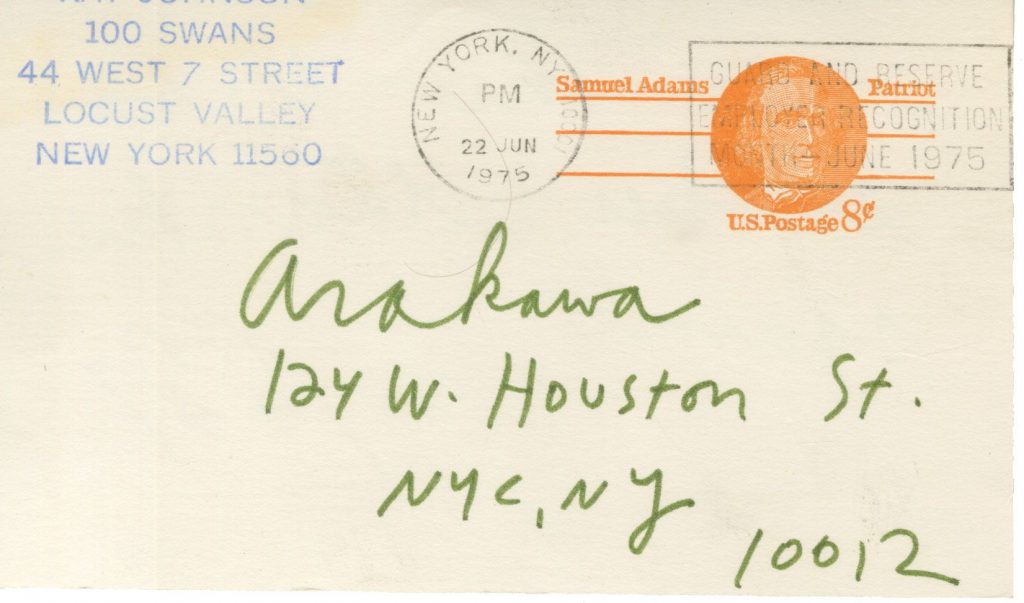 RAY JOHNSON
100 SWANS
44 WEST 7 STREET
LOCUST VALLEY
NEW YORK 11560
NEW YORK, NY
PM
22 JUN
1975
Samuel Adams Patriot
U.S. Postage 8¢
GUARD AND RESERVE
EMPLOYER RECOGNITION
MONTH—JUNE 1975
Arakawa
124 W. Houston St.
NYC, NY
10012